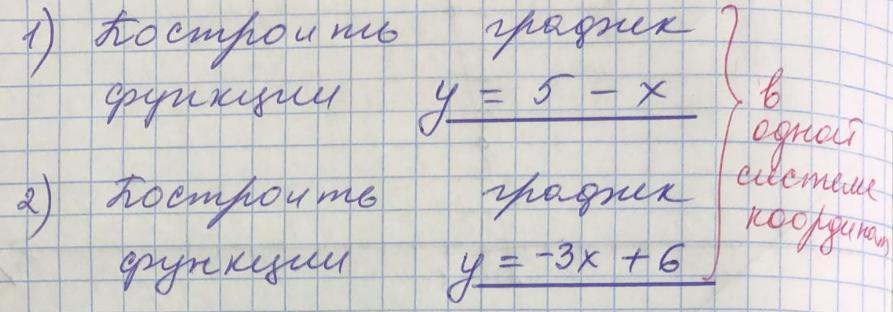 1) Построить график
функции y = 5 - x
2) Построить график
функции y = -3x + 6
в
одной
системе
координат